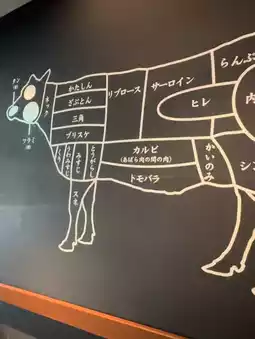 タン
ツラミ
ネック
かたしん
ざぶとん
三角
ブリスケ
うわみすじ
みすじ
とうがらし
スネ
リブロース
サーロイン
ヒレ
らんぷ
内
カルビ
(あばら肉の間の肉)
トモバラ
かいのみ
シン